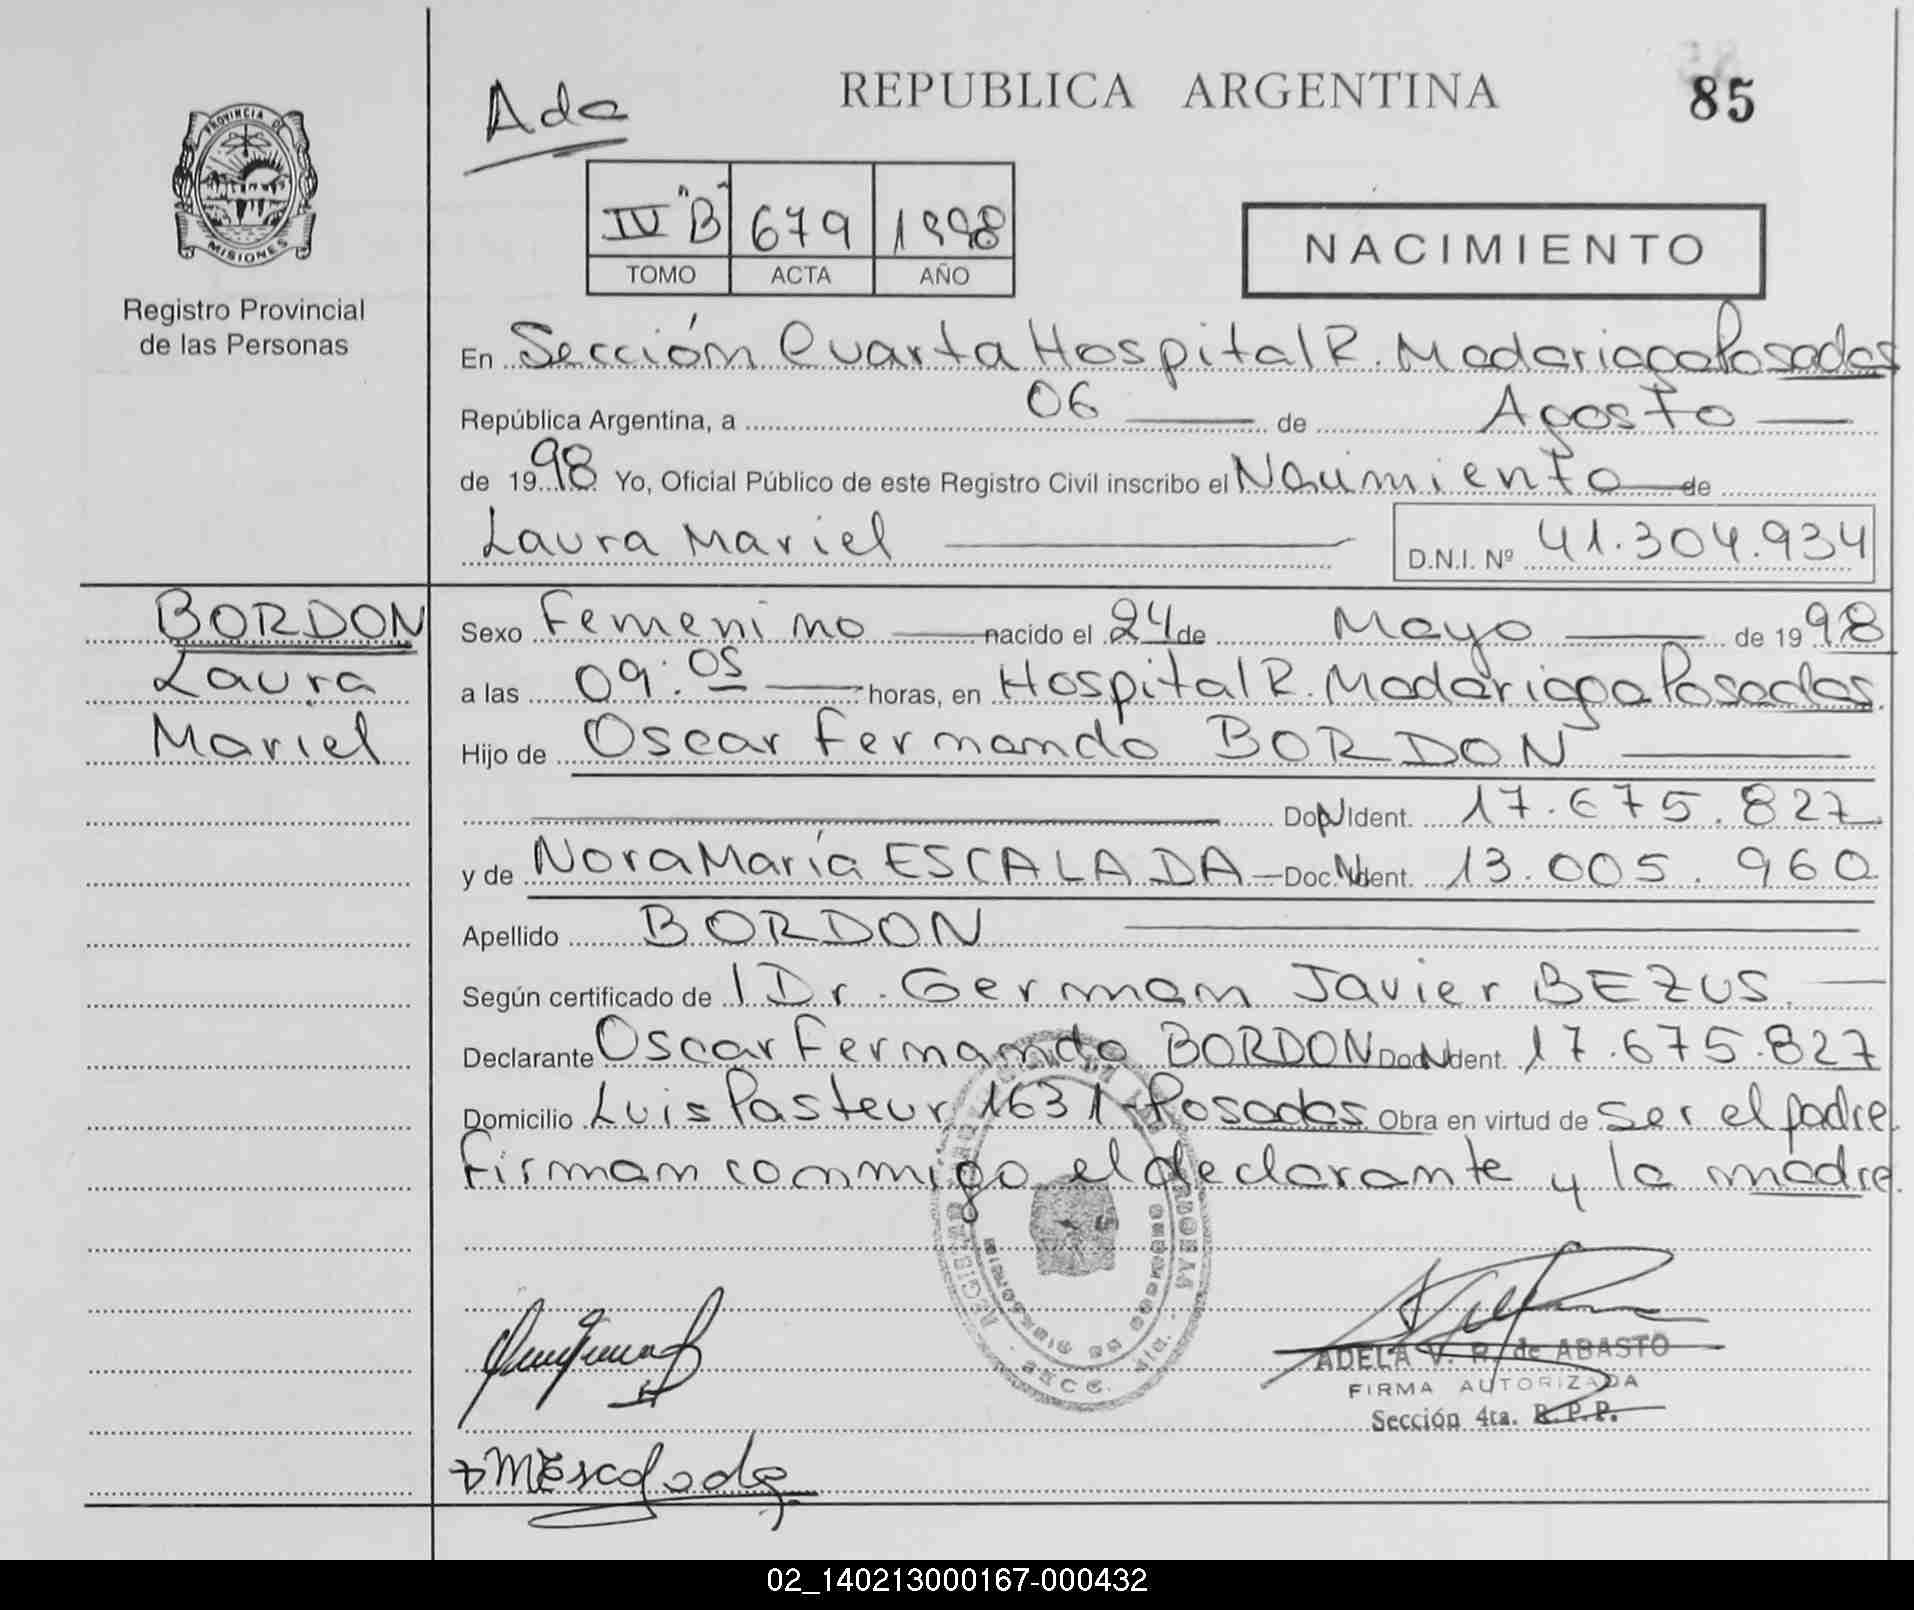 Ada
REPUBLICA ARGENTINA
85
PROVINCIA DE
MISIONES
Registro Provincial
de las Personas
IV "B" 679 1998
TOMO ACTA AÑO
NACIMIENTO
En Sección Cuarta Hospital R. Madariaga Posadas
República Argentina, a 06 de Agosto
de 1998 Yo, Oficial Público de este Registro Civil inscribo el Nacimiento de
Laura Mariel D.N.I. Nº 41.304.934
BORDON
Laura
Mariel
Sexo Femenino nacido el 24 de Mayo de 1998
a las 09:05 horas, en Hospital R. Madariaga Posadas.
Hijo de Oscar Fernando BORDON
Doc. Ident. 17.675.827
y de Nora María ESCALADA Doc. Ident. 13.005.960
Apellido BORDON
Según certificado de 1 Dr. German Javier BEZUS
Declarante Oscar Fernando BORDON Doc. Ident. 17.675.827
Domicilio Luis Pasteur 1631 - Posadas Obra en virtud de ser el padre.
Firman conmigo el declarante y la madre.
ADELA V. R. de ABASTO
FIRMA AUTORIZADA
Sección 4ta. R.P.P.
02_140213000167-000432